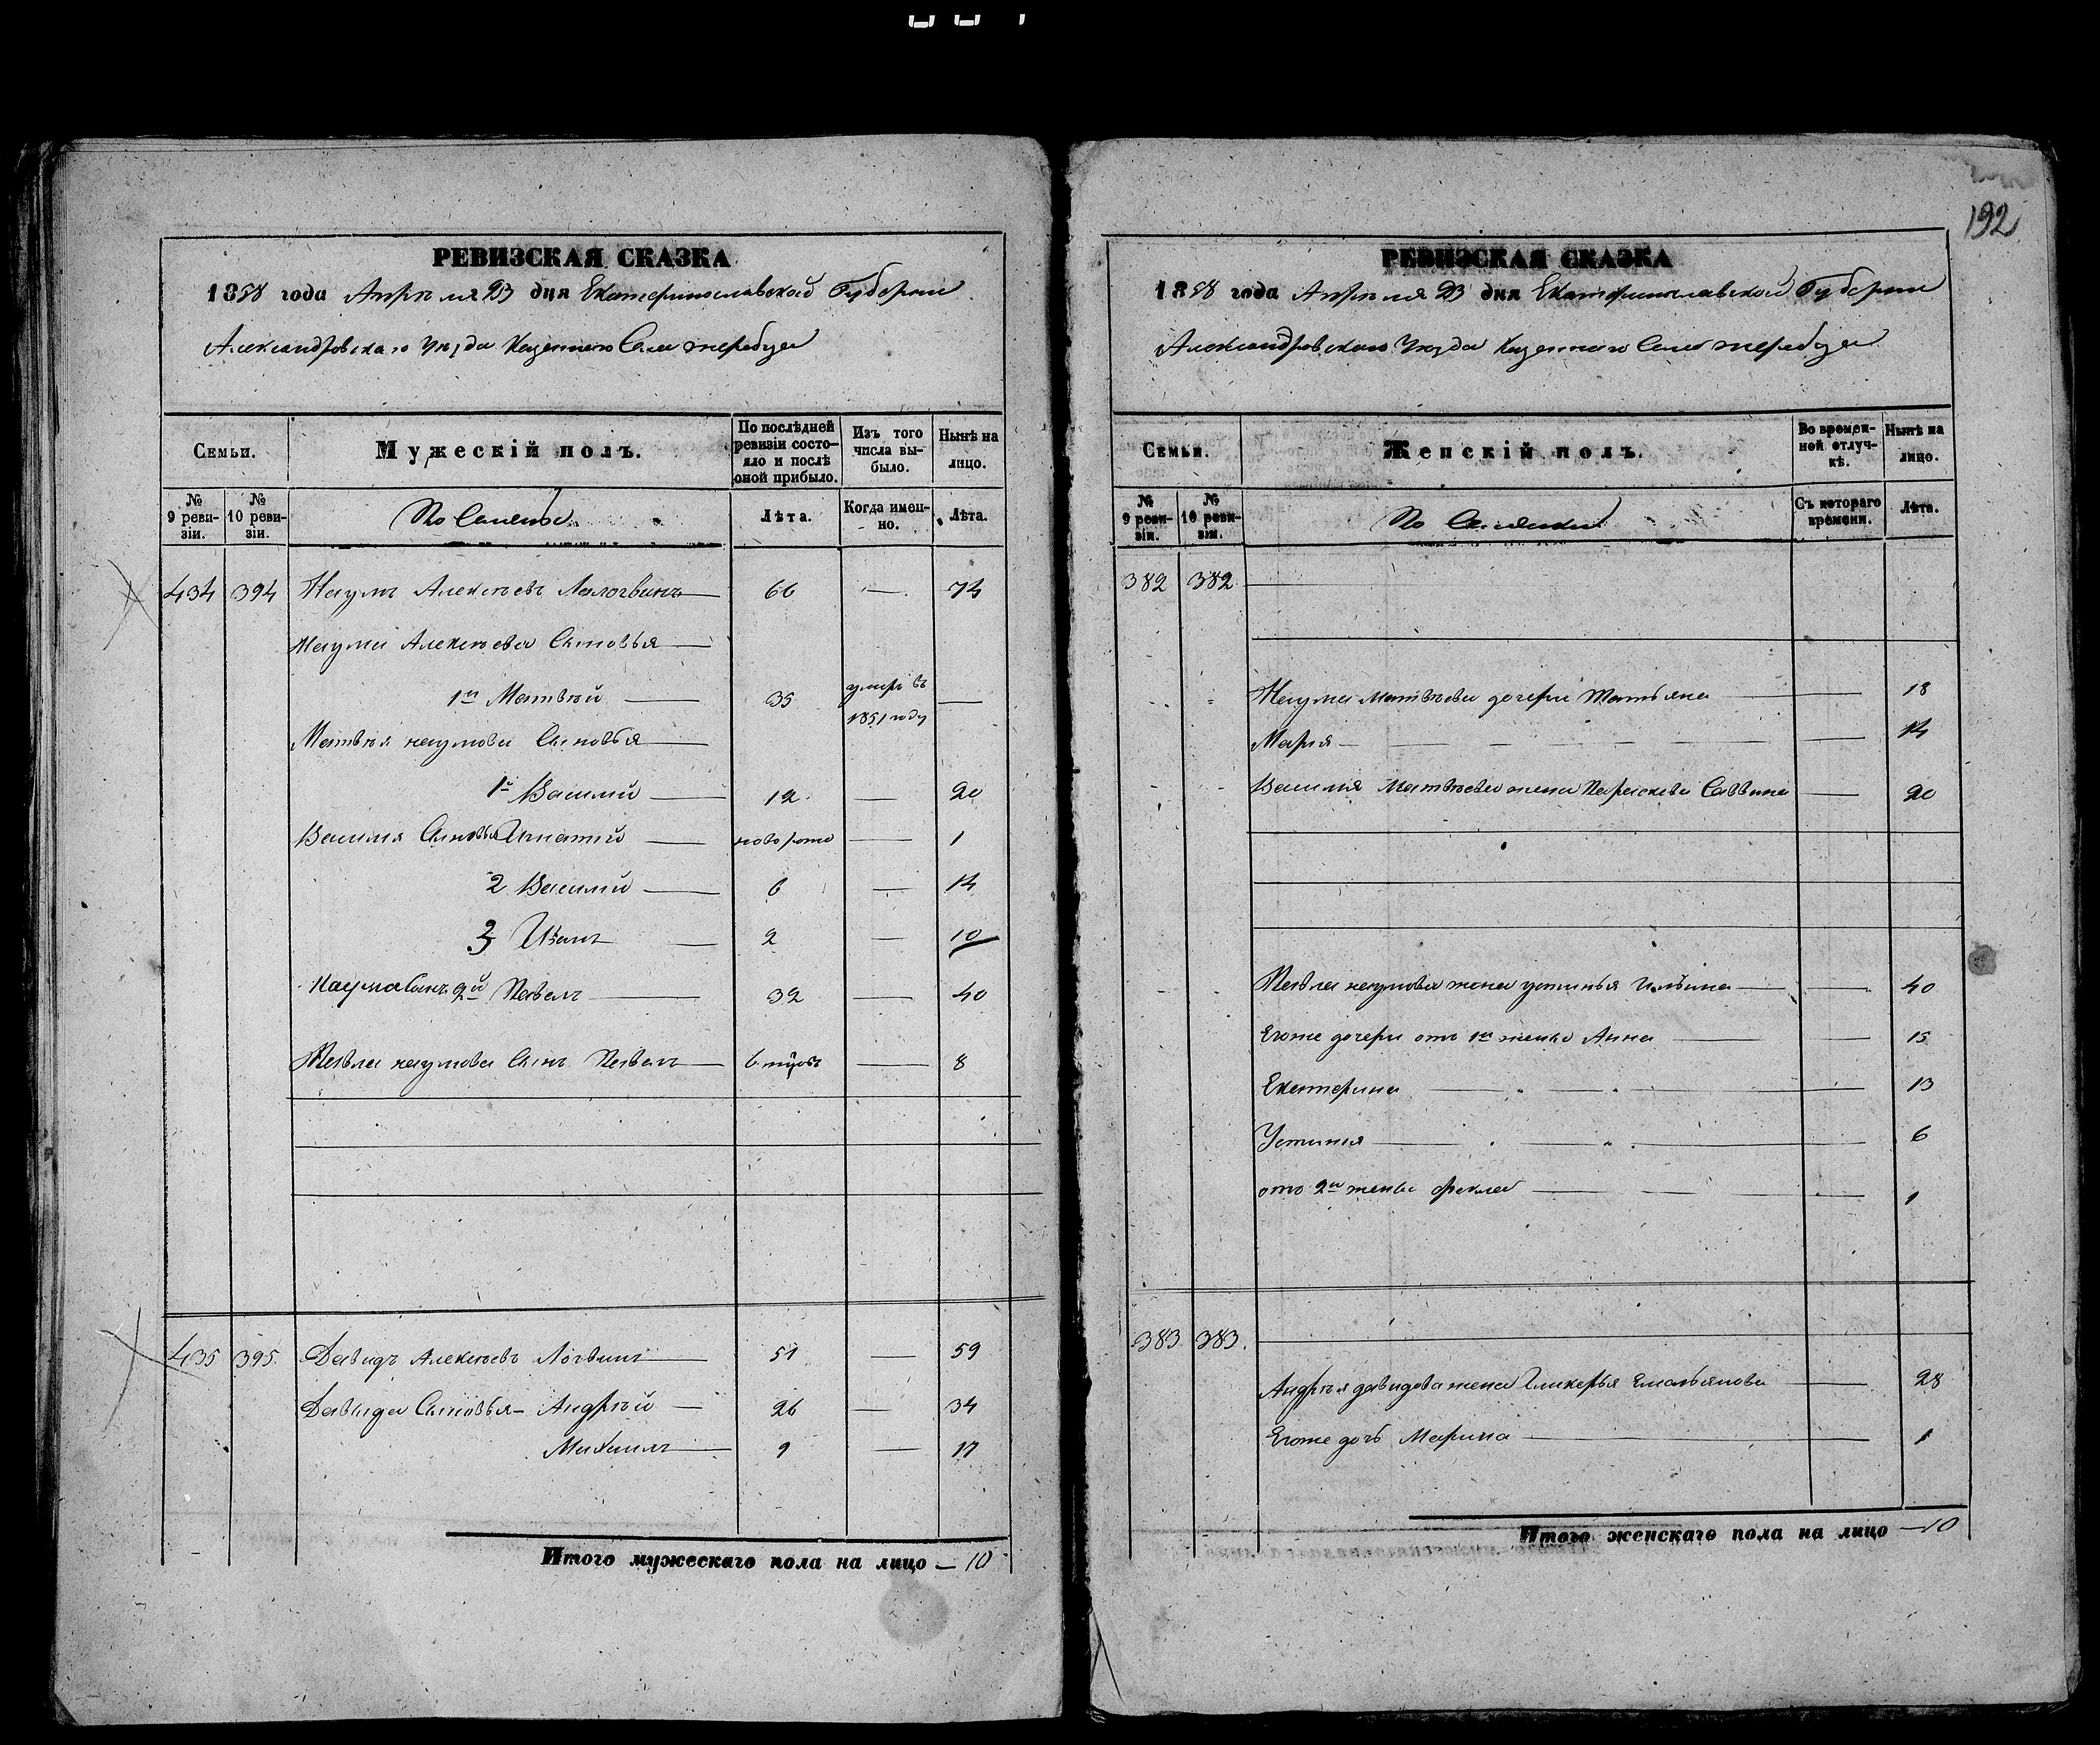 192
РЕВИЗСКАЯ СКАЗКА
1858 года Апрѣля 23 дня Екатеринославской Губернии
Александровскаго Уѣзда Казеннаго Села жеребца
Семьи.
Мужескій полъ.
По послѣдней ревизіи состояло и послѣ оной прибыло.
Изъ того числа выбыло.
Нынѣ на лицо.
№ 9 ревизіи.
№ 10 ревизіи.
Лѣта.
Когда именно.
Лѣта.
434 394 Наумъ Алексѣевъ 66 — 74
Наума Алексѣева Сыновья
1й Матвѣй 35 умеръ въ 1851 году —
Матвѣя наумова Сыновья
1й Василий 12 — 20
Василия Сыновья Игнатий — 1
2 Василий 6 — 14
3 Иванъ 2 — 10
Наума Сынъ 2й Павелъ 32 — 40
Павла наумова Сынъ Павелъ — 8
435 395 Давидъ Алексѣевъ Логвинъ 51 — 59
Давида Сыновья Андрѣй 26 — 34
Михаилъ 9 — 17
Итого мужескаго пола на лицо — 10
РЕВИЗСКАЯ СКАЗКА
1858 года Апрѣля 23 дня Екатеринославской Губернии
Александровскаго Уѣзда Казеннаго Села жеребца
Семьи.
Женскій полъ.
Во временной отлучкѣ.
Нынѣ на лицо.
№ 9 ревизіи.
№ 10 ревизіи.
Съ котораго времени.
Лѣта.
382 382
Наума Матвѣева дочери Татьяна — 18
Мария — 14
Василия Матвѣева жена Параскева Саввина — 20
Павла наумова жена устинья Ильина — 40
Егоже дочери отъ 1й жены Анна — 15
Екатерина — 13
Устиния — 6
отъ 2й жены фекла — 1
383 383
Андрѣя давидова жена Гликерья Емельянова — 28
Егоже дочь Марина — 1
Итого женскаго пола на лицо — 10